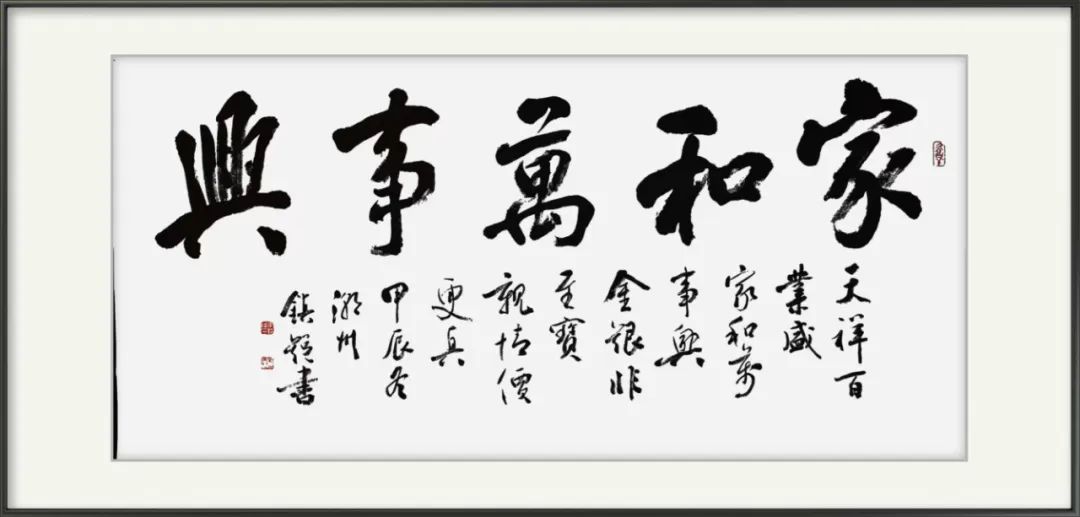 家和萬事興
天祥百
業盛
家和萬
事興
金銀非
至寶
親情價
更真
甲辰冬
潮州
鎮書